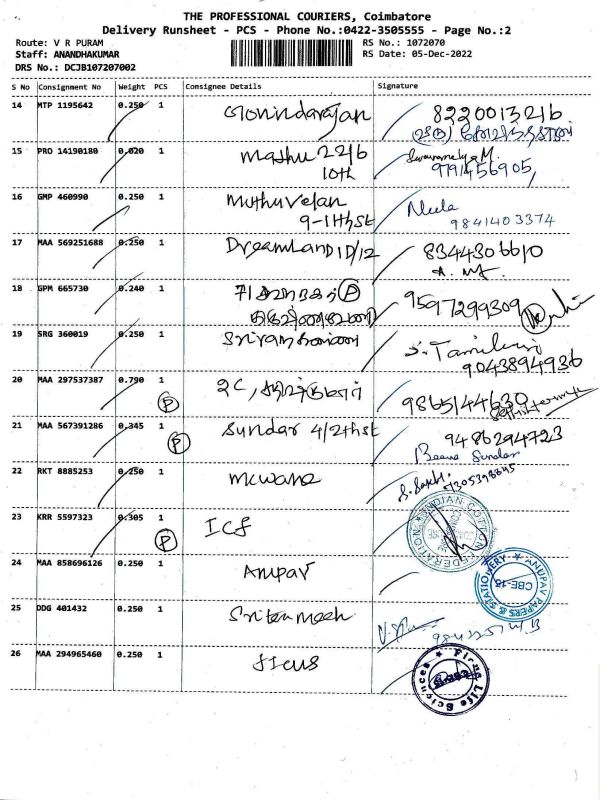 THE PROFESSIONAL COURIERS, Coimbatore
Delivery Runsheet - PCS - Phone No.:0422-3505555 - Page No.:2
Route: V R PURAM
Staff: ANANDHAKUMAR
DRS No.: DCJB107207002
RS No.: 1072070
RS Date: 05-Dec-2022
S No Consignment No Weight PCS Consignee Details Signature
14 MTP 1195642 0.250 1 Govindarajan 8220013216
15 PRO 14190180 0.020 1 Mathu 22/6 10th 9791456905
16 GMP 460990 0.250 1 Muthuvelan 9-11thst 9841403374
17 MAA 569251688 0.250 1 DreamLand 10/12 8344306610
18 GPM 665730 0.240 1 P 9597299309
19 SRG 360019 0.250 1 9043894936
20 MAA 297537387 0.790 1 P 2C, 9865144630
21 MAA 567391286 0.345 1 P Sundar 4/2thst 9486294723
22 RKT 8885253 0.250 1 Mcwane 7305398645
23 KRR 5597323 0.305 1 P ICF INDIAN COTTON FEDERATION
24 MAA 858696126 0.250 1 Anupav ANUPAV PAPERS & STATIONERY CBE-18
25 DDG 401432 0.250 1
26 MAA 294965460 0.250 1 ficus Life Sciences